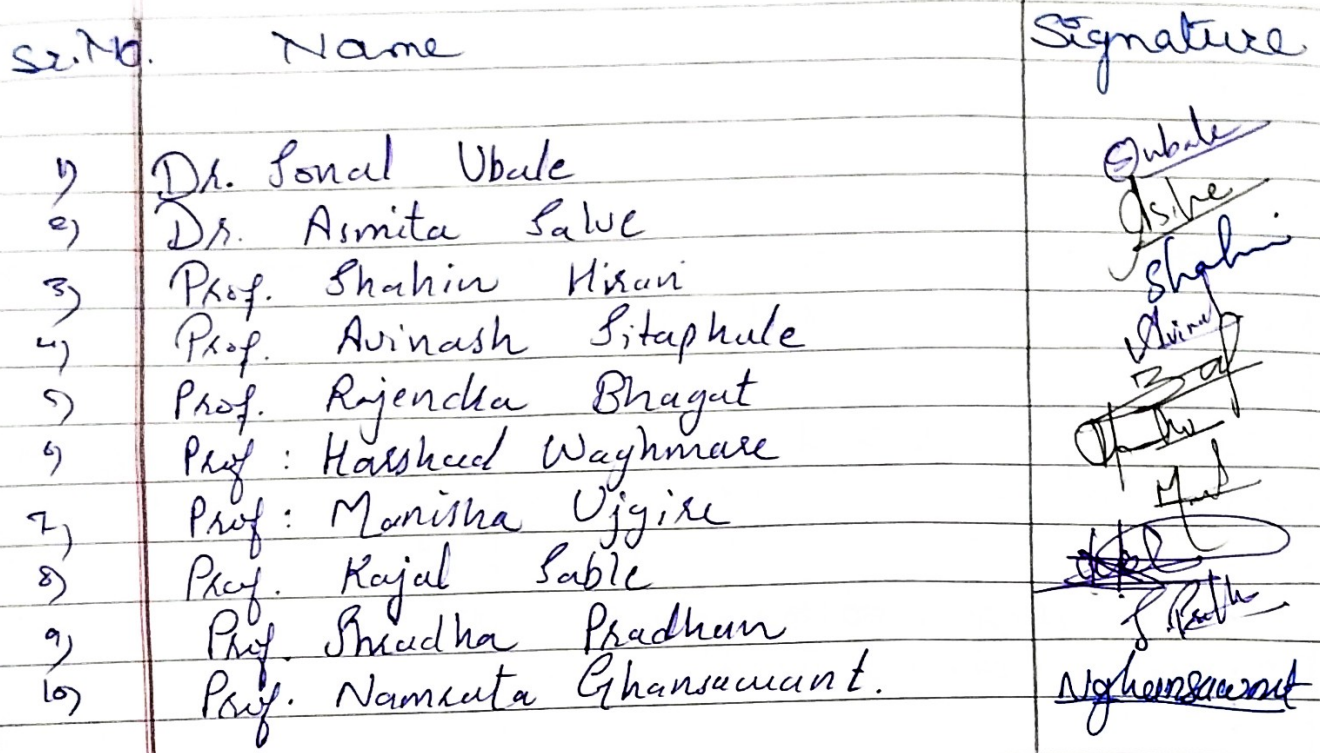 Sr.No. Name Signature
1) Dr. Sonal Ubale Subale
2) Dr. Asmita Salve
3) Prof. Shahin Hiran Shahin
4) Prof. Avinash Sitaphule Avinash
5) Prof. Rajendra Bhagat
6) Prof : Harshad Waghmare
7) Prof : Manisha Ujgire
8) Prof. Kajal Sable
9) Prof. Shradha Pradhan
10) Prof. Namrata Ghansawant. Nghansawant